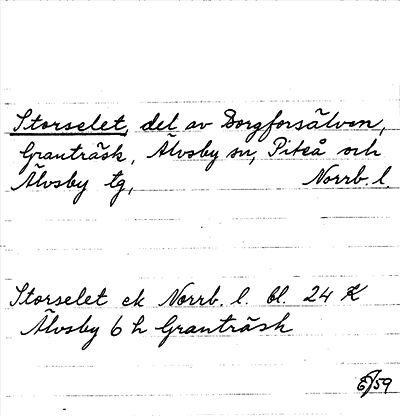 Storselet, del av Borgforsälven,
Granträsk, Älvsby sn, Piteå och
Älvsby tg, Norrb. l.
Storselet ek Norrb. l. bl. 24 K
Älvsby 6 h Granträsk
/59